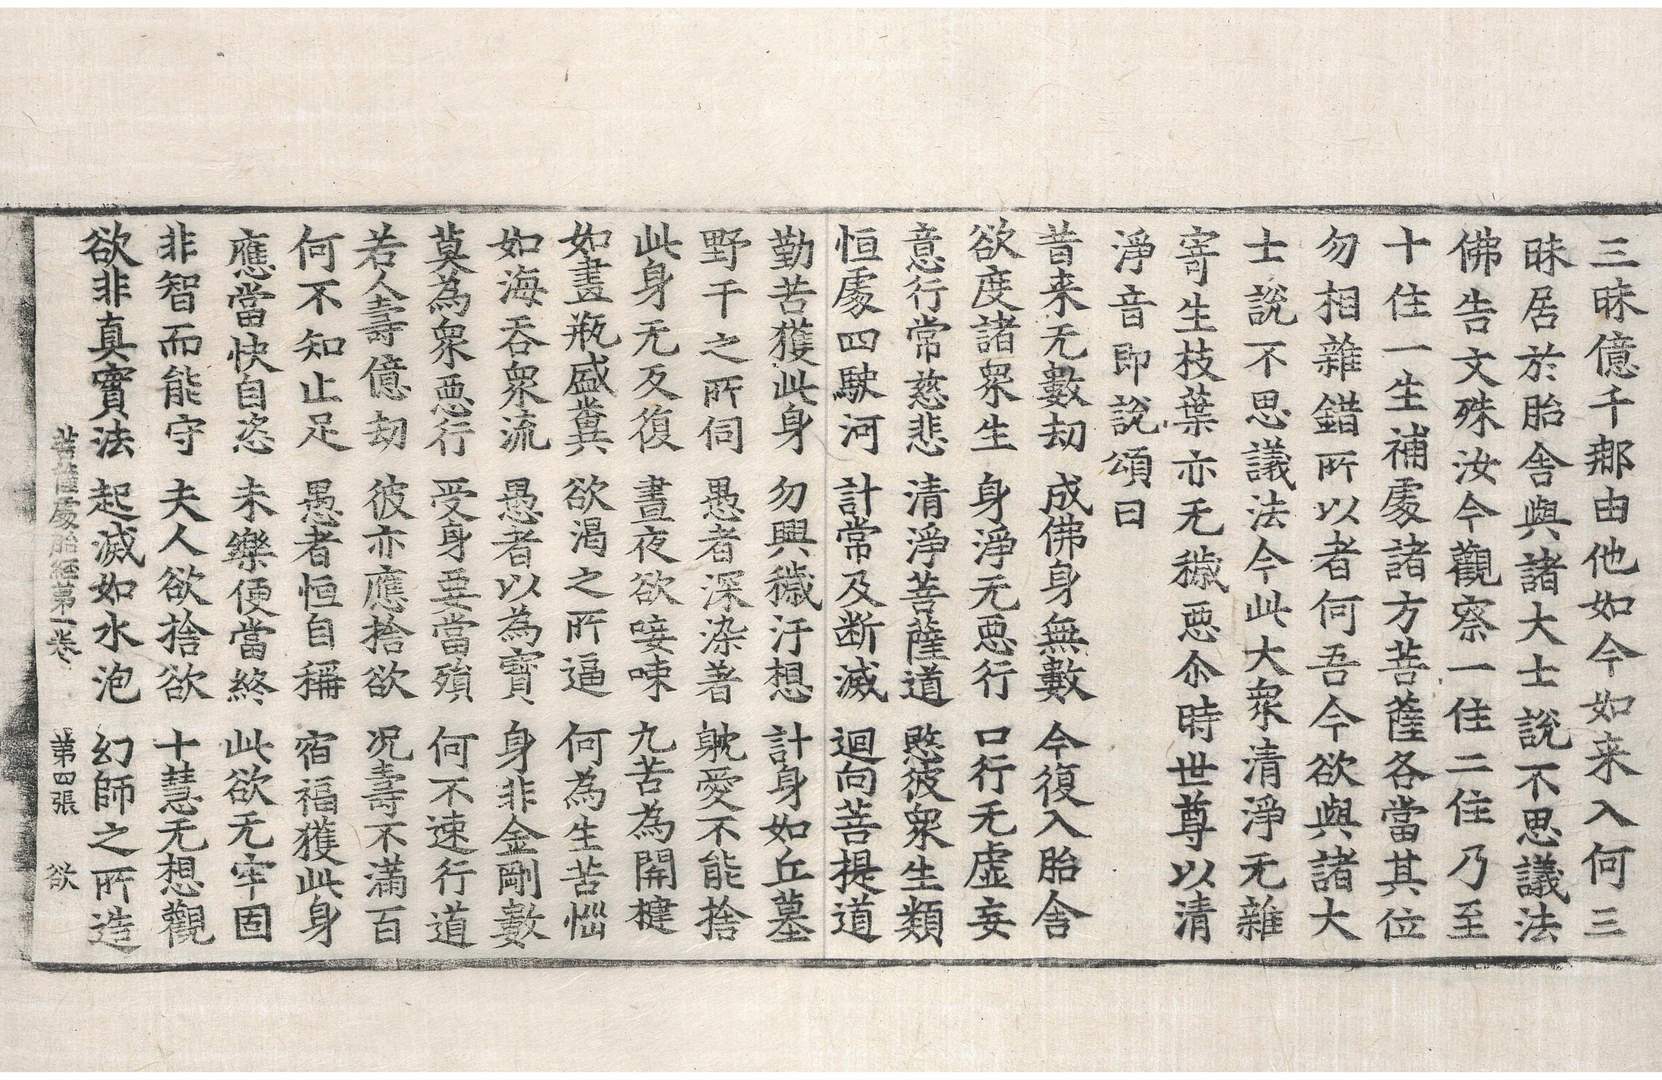 三昧億千那由他如今如来入何三
昧居於胎舎與諸大士說不思議法
佛告文殊汝今觀察一住二住乃至
十住一生補處諸方菩薩各當其位
勿相雜錯所以者何吾今欲與諸大
士說不思議法今此大衆清淨无雜
寄生枝葉亦无穢惡尒時世尊以清
淨音即說頌曰
昔来无數劫 成佛身無數 今復入胎舎
欲度諸衆生 身淨无惡行 口行无虚妄
意行常慈悲 清淨菩薩道 愍彼衆生類
恒處四駛河 計常及断滅 迴向菩提道
勤苦獲此身 勿興穢汙想 計身如丘墓
野干之所伺 愚者深染著 躭愛不能捨
此身无反復 晝夜欲唼㖨 九苦為開楗
如畫瓶盛糞 欲渴之所逼 何為生苦惱
如海吞衆流 愚者以為寶 身非金剛數
莫為衆惡行 受身要當殞 何不速行道
若人壽億劫 彼亦應捨欲 况壽不滿百
何不知止足 愚者恒自稱 宿福獲此身
應當快自恣 未樂便當終 此欲无牢固
非智而能守 夫人欲捨欲 十慧无想觀
欲非真實法 起滅如水泡 幻師之所造
菩薩處胎經第一卷 第四張 欲